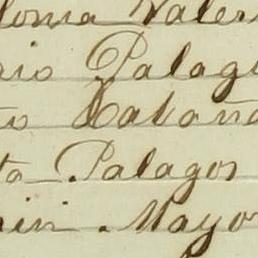 onia Valer
rio Palag
to Cataña
ta Palagos
nin. Mayo